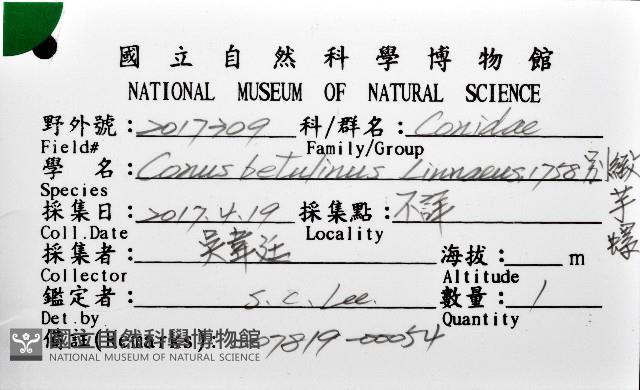 國立自然科學博物館
NATIONAL MUSEUM OF NATURAL SCIENCE
野外號：2017309 科/群名：Conidae
Field# Family/Group
學 名：Conus betulinus Linnaeus, 1758 別緻芋螺
Species
採集日：2017.4.19 採集點：不詳
Coll.Date Locality
採集者：吳韋廷 海拔： m
Collector Altitude
鑑定者：S. C. Lee. 數量：1
Det.by Quantity
備註(Remarks): 007819-00054
國立自然科學博物館
NATIONAL MUSEUM OF NATURAL SCIENCE